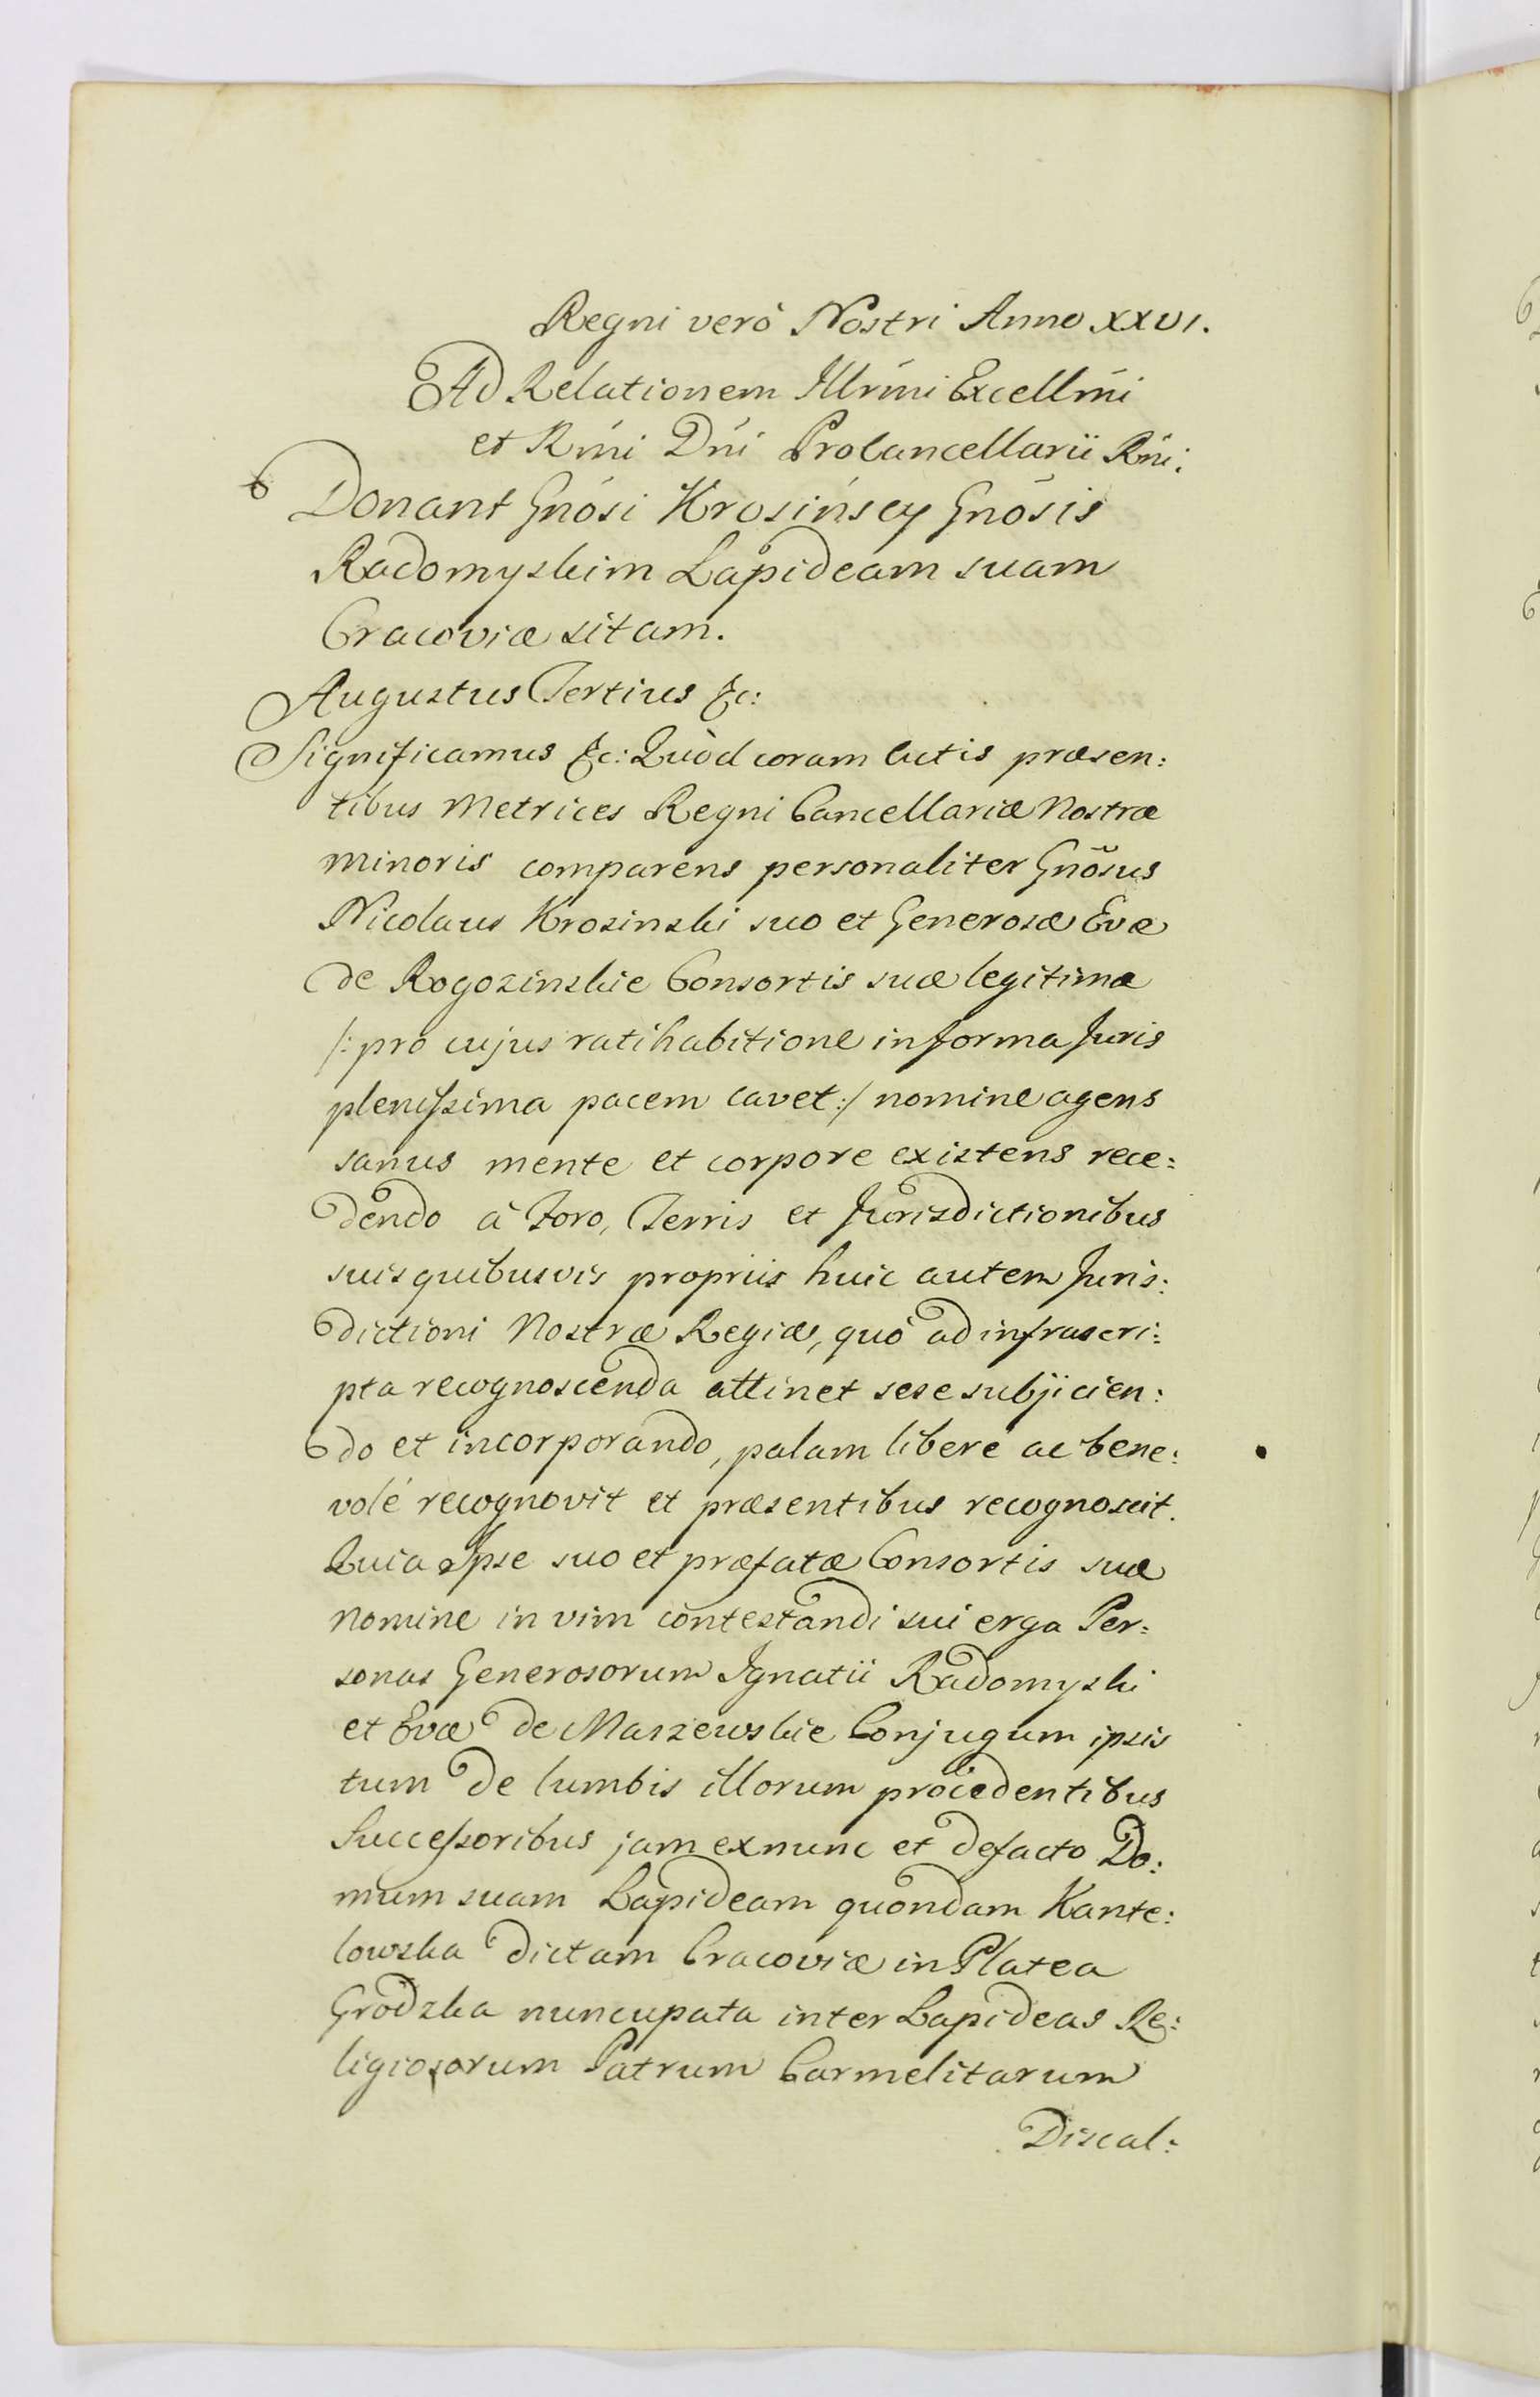 Regni verò Nostri Anno XXVI.
Ad Relationem Illrm̃i Excellm̃i
et Rm̃i Dñi Procancellarii Rñi.
Donant Gnõsi Krosińscy Gnõsis
Radomyskim Lapideam suam
Cracoviæ sitam.
Augustus Tertius &c:
Significamus &c: Quòd coram Actis præsen:
tibus Metrices Regni Cancellariæ Nostræ
minoris comparens personaliter Gnõsus
Nicolaus Krosinski suo et Generosæ Evæ
de Rogozinskie Consortis suæ legitimæ
/: pro cujus ratihabitione in forma Juris
plenissima pacem cavet :/ nomine agens
sanus mente et corpore existens rece:
dendo à Foro, Terris et Jurisdictionibus
suis quibusvis propriis huic autem Juris:
dictioni Nostræ Regiæ, quó ad infrascri:
pta recognoscenda attinet sese subjicien:
do et incorporando, palam liberè ac bene:
volé recognovit et præsentibus recognoscit.
Quia Ipse suo et præfatæ Consortis suæ
nomine in vim contestandi sui erga Per:
sonas Generosorum Ignatii Radomyski
et Evæ de Marzewskie Conjugum ipsis
tum de lumbis illorum procedentibus
Successoribus jam exnunc et defacto Do:
mum suam Lapideam quondam Kante:
lowska dictam Cracoviæ in Platea
Grodzka nuncupata inter Lapideas Re:
ligiosorum Patrum Carmelitarum
Discal: